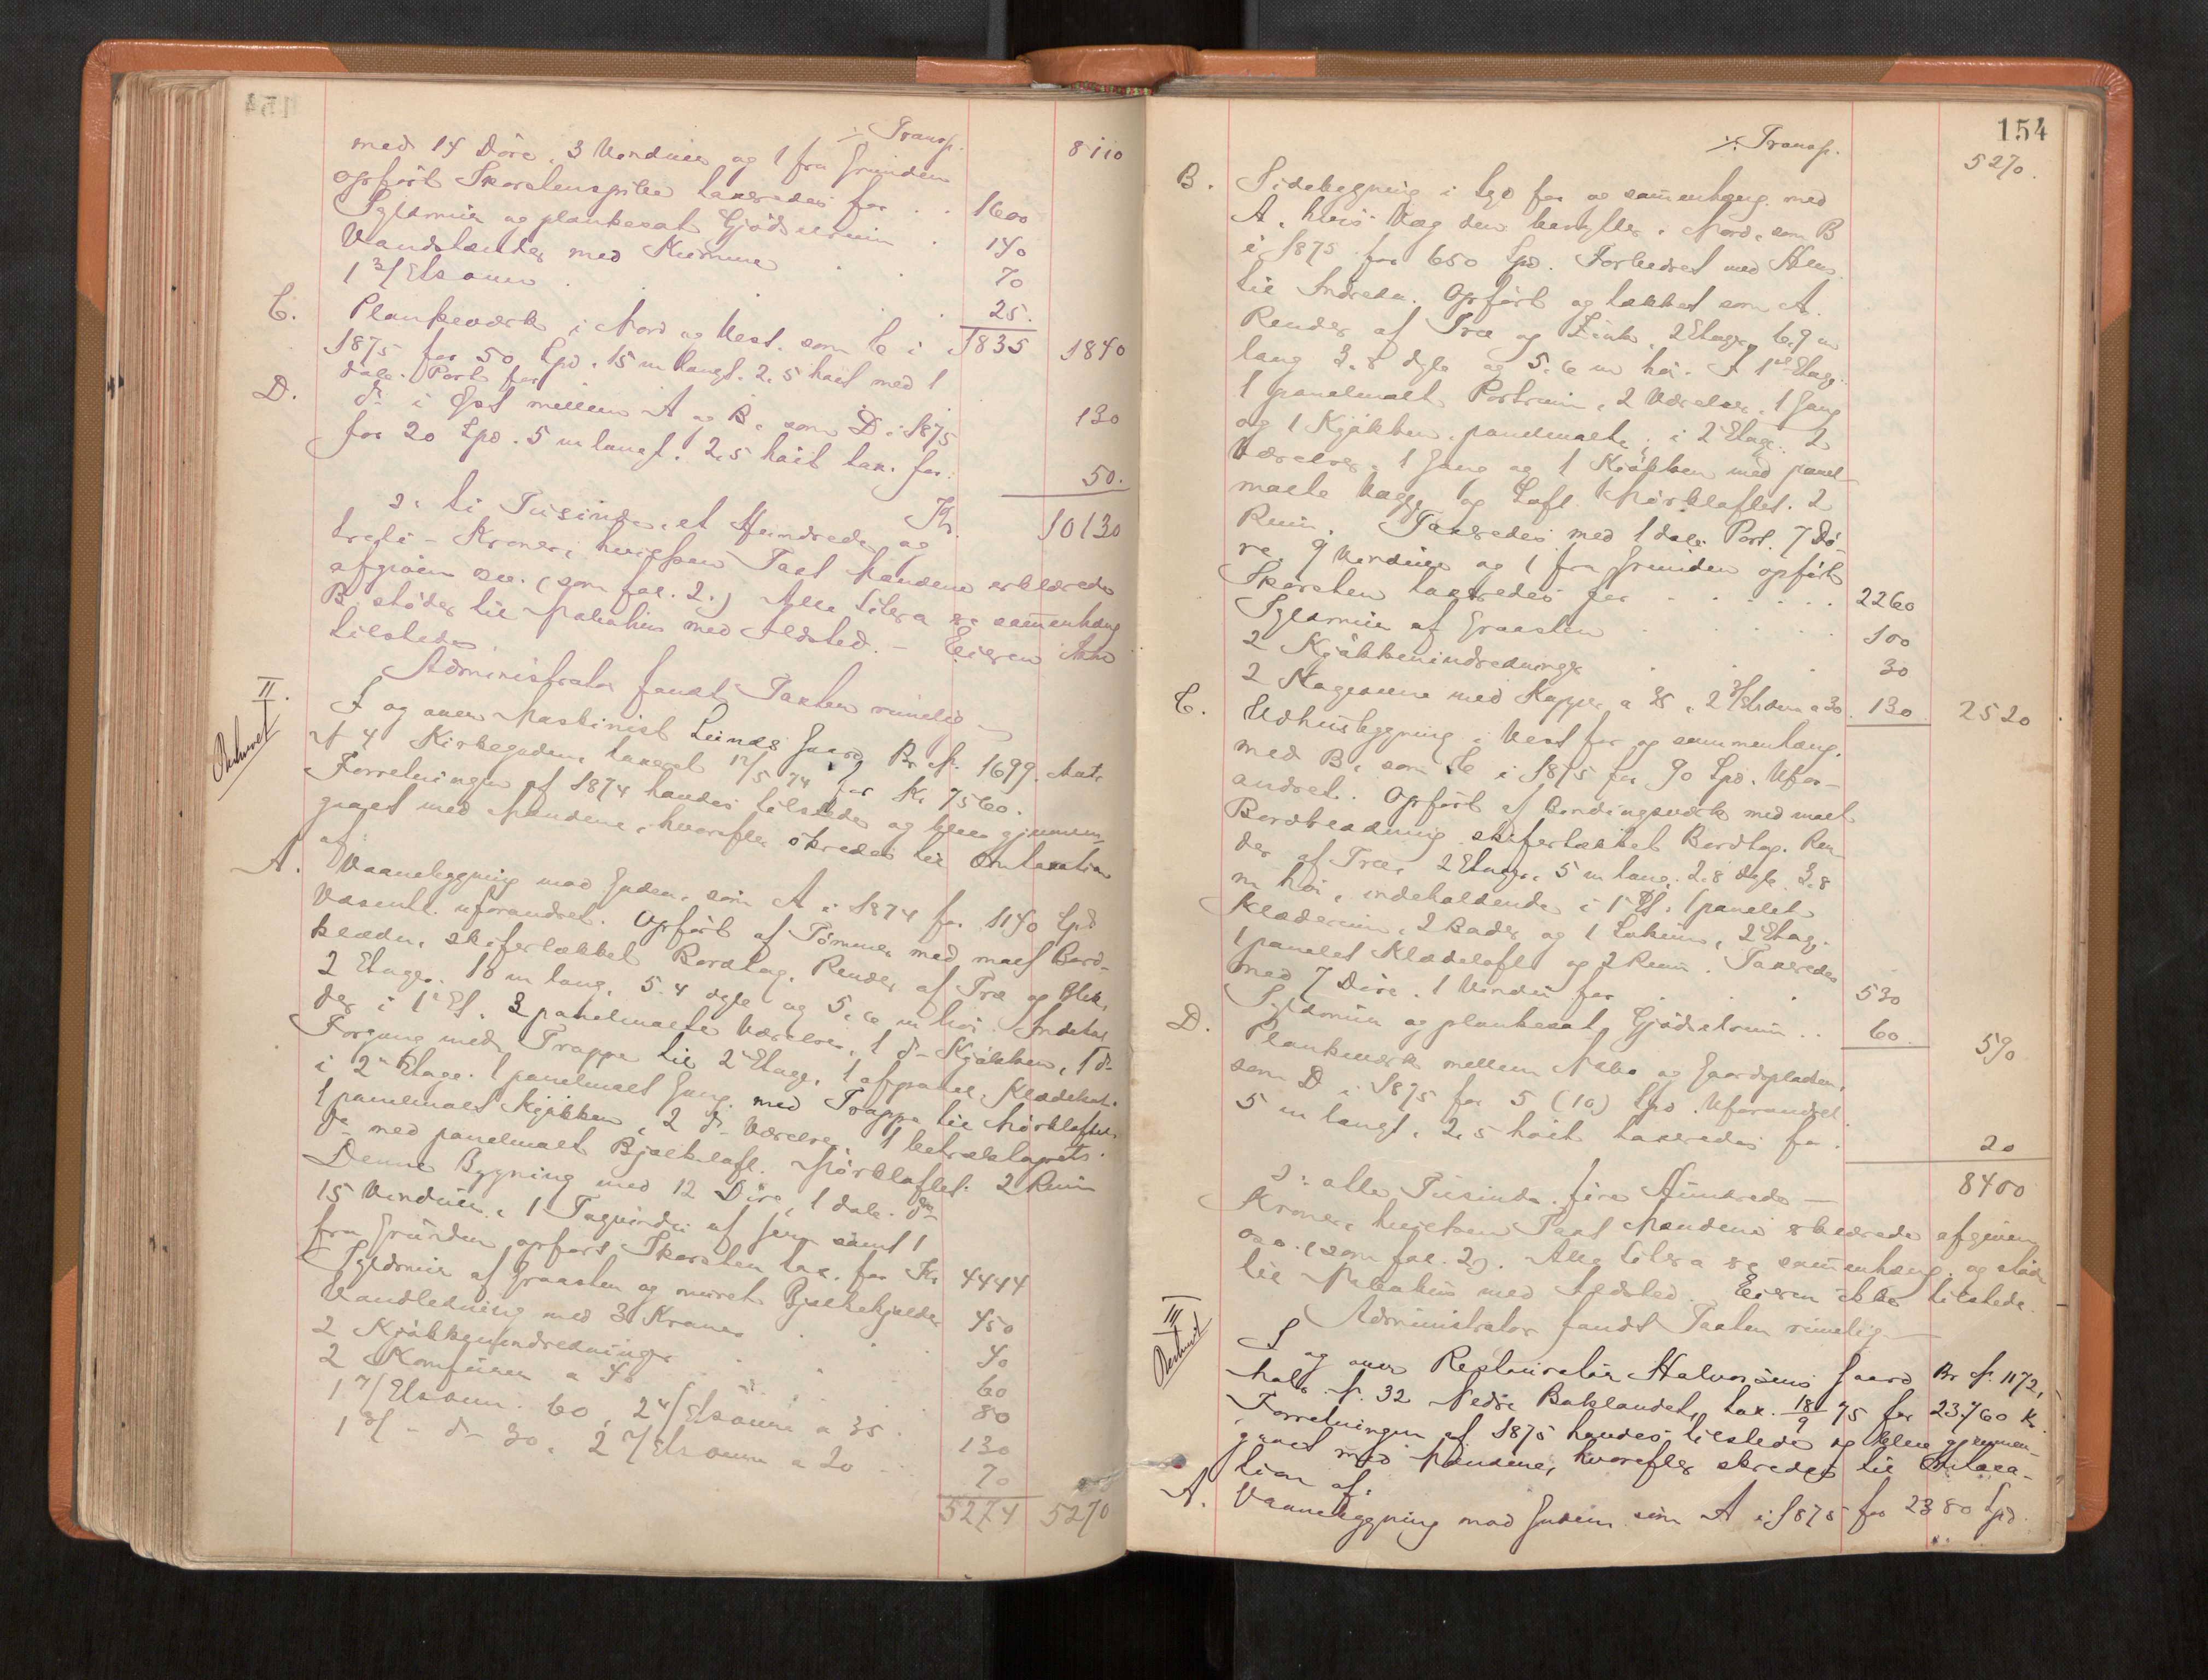 ⁒ Transp. 8110
med 14 Döre, 3 Vinduer og 1 fra Grunden
opført Skorstenspibe taxeredes for . . 1600
Syldmur og plankesat Gjödselrum . 140
Vandstænder med Kumme . . 70
1 3/Etsovn . . . 25.
1835 1840
C. Plankeværk i Nord og Vest. som C i
1875 for 50 Spd. 15 m langt. 2,5 höit med 1
dobb. Port for 130
D. do i Öst mellem A og B, som D i 1875
for 20 Spd. 5 m langt. 2,5 höit tax. for. 50.
Kr. 10130
ɔ: ti Tusinde, et Hundrede og
tredi - Kroner, hvilken Taxt Mændene erklærede
afgiven osv. (som fol. 2.) Alle Litera er sammenhæng
B støder til Nabohus med Ildsted. - Eieren ikke
tilstede
Administrator fandt Taxten rimelig -
II. I og over Maskinist Leinæs Gaard Br. N. 1699. Matr.
Beskrevet
N. 4 Kirkegaden, taxeret 12/5 74 for Kr 7560.
Forretningen af 1874 havdes tilstede og blev gjennem-
gaaet med Mændene, hvorefter skredes til Omtaxation
af:
A. Vaanebygning mod Gaden, som A i 1874 for 1140 Spd
Væsentl. uforandret. Opført af Tömmer med malt Bord-
klædn. skifertækket Bordtag. Render af Træ og Blik,
2 Etager. 10 m lang, 5.4 dyb og 5,6 m höi. Indehol
der i 1ste Et. 3 panelmalte Værelser, 1 do Kjökken, 1 do
Forgang med Trappe til 2den Etage, 1 afpanel. Klædekot.
i 2den Etage. 1 panelmalt Gang med Trappe til Mörkloftet.
1 panelmalt Kjökken, 2 do Værelser, 1 betræktapets.
do med panelmalt Bjælkeloft. Mörkloftet. 2 Rum
Denne Bygning med 12 Döre, 1 dobb. do
15 Vinduer, 1 Tagvindu af Jern samt 1
fra Grunden opført Skorsten tax. for Kr 4444
Syldmur af Graasten og muret Bjælkekjælder 450
Vandledning med 3 Kraner . . 40
2 Kjökkenindredninger . . . 60
2 Komfurer a 40 . . . 80
1 4/Etsovn. 60, 2 4/Etsovne a 35 . 130
1 3/ - do - 30, 2 2/Etsovne a 20 . . 70
5274 5270
154
⁒ Transp. 5270.
B. Sidebygning i Syd for og sammenhæng. med
A. hvis Væg den benytter i Nord, som B
i 1875 for 650 Spd. Forbedret med Hen
til Indreda. Opført og tækket som A.
Render af Træ og Zink, 2 Etager, 6,9 m
lang 3,8 dyb og 5,6 m höi. I 1ste Etage
1 panelmalt Portrum, 2 Værelser, 1 Gang
og 1 Kjökken, panelmalte; i 2 Etage. 2
Værelser, 1 Gang og 1 Kjökken med panel-
malte Vægge og Loft. Mörkloftet. 2
Rum. Taxeredes med 1 dobb. Port. 7 Dö-
re, 9 Vinduer og 1 fra Grunden opført
Skorsten taxeredes for . . . . . . 2260
Syldmur af Graasten . . . . . 100
2 Kjökkenindredninger . . . 30
2 Kogeovne med Kapper a 35, 2 3/Etsovne a 30. 130 2520
C. Udhusbygning i Vest for og sammenhæng.
med B, som C i 1875 for 90 Spd. Ufor-
andret. Opført af Bindingsværk med malt
Bordklædning skifertækket Bordtag. Ren-
der af Træ, 2 Etager, 5 m lang. 2.8 dyb. 3,8
m höi, indeholdende i 1ste Et. 1 panelet
Klæderum, 2 Boder og 1 Lokum, 2 Etag.
1 panelet Klædeloft og 2 Rum. Taxeredes
med 7 Döre, 1 Vindu for . . . 530
Syldmur og plankesat Gjödselrum . . 60. 590
D. Plankeværk mellem Nabo og Gaardspladsen,
som D i 1875 for 5 (10) Spd. Uforandret
5 m langt, 2,5 höit taxeredes for. 20
8400
ɔ: otte Tusinde fire Hundrede -
Kroner, hvilken Taxt Mændene erklærede afgiven
osv. (som fol. 2). Alle Litera er sammenhæng. og stöde
til Nabohus med Ildsted. Eieren ikke tilstede.
Administrator fandt Taxten rimelig -
III I og over Restauratör Halvorsens Gaard Br. N. 1172,
Beskrevet
Matr. N. 32 Nedre Baklandet, tax. 18/9 75 for 23760 Kr.
Forretningen af 1875 havdes tilstede og blev gjennem-
gaaet med Mændene, hvorefter skredes til Omtaxa-
tion af.
A. Vaanebygning mod Gaden som A i 1875 for 2380 Spd.